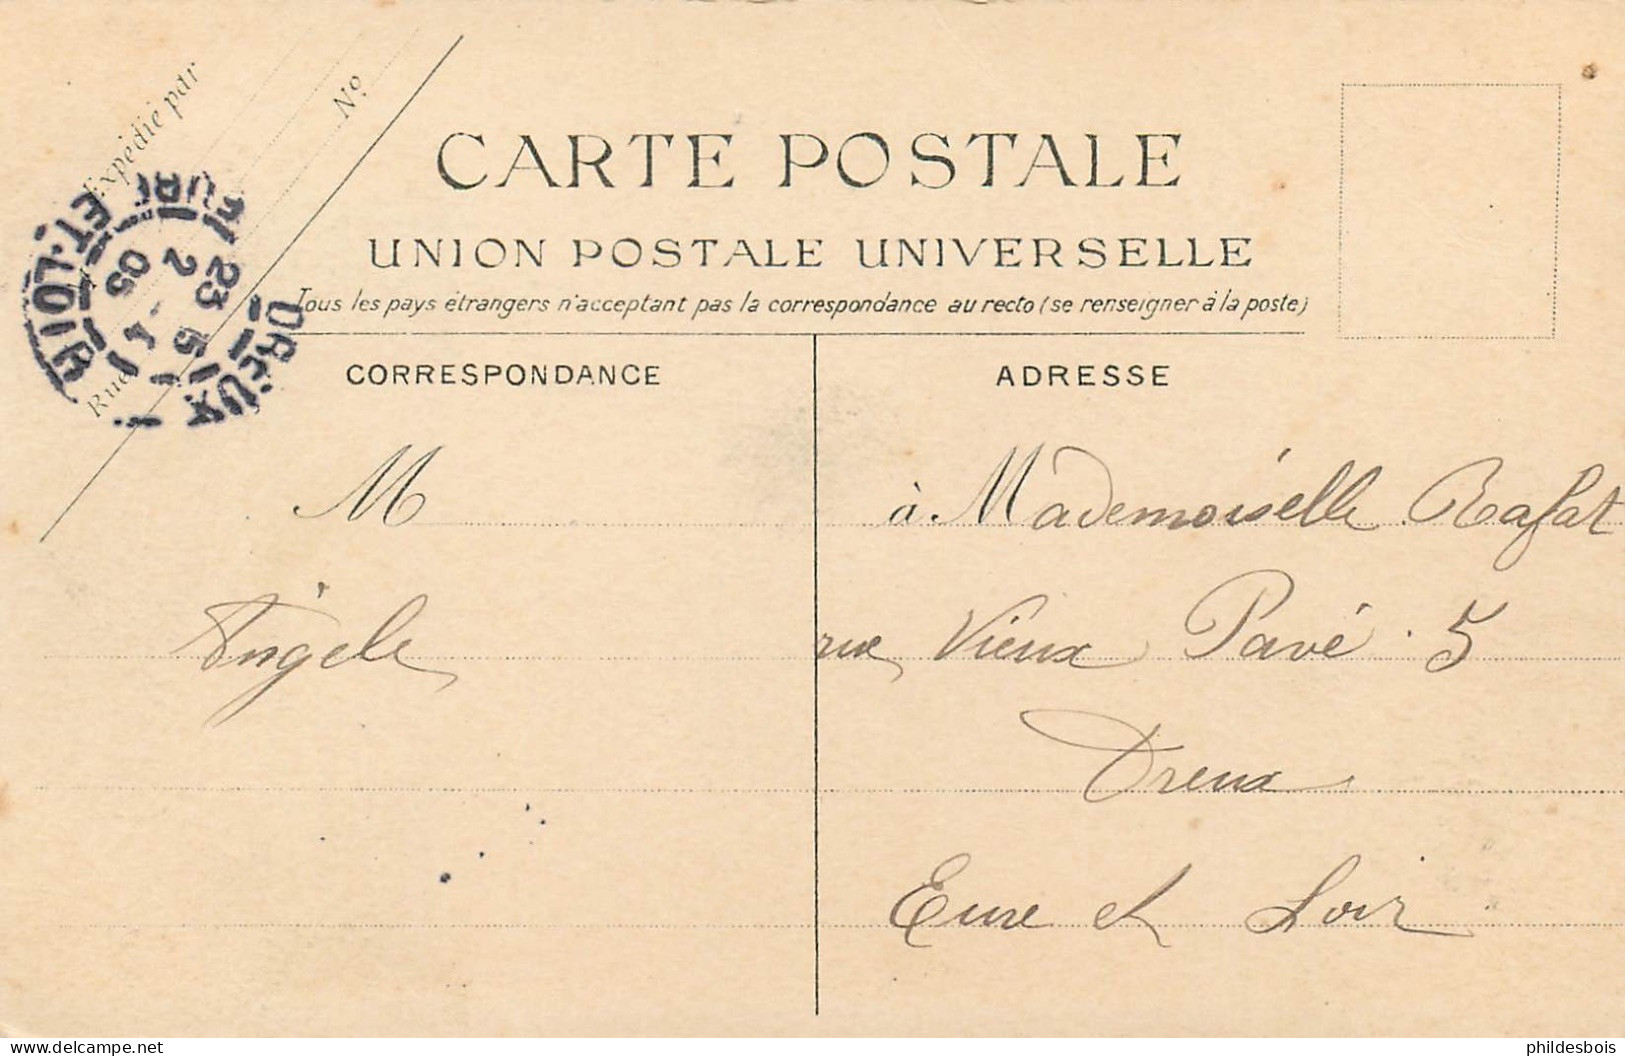 Expédié par
Nº
Rue
CARTE POSTALE
UNION POSTALE UNIVERSELLE
Tous les pays étrangers n'acceptant pas la correspondance au recto (se renseigner à la poste)
DREUX
EURE-ET-LOIR
23
2
05
CORRESPONDANCE
ADRESSE
M
Angèle
à Mademoiselle Rafat
rue Vieux Pavé . 5
Dreux
Eure et Loir
Delcampe.net
phildesbois